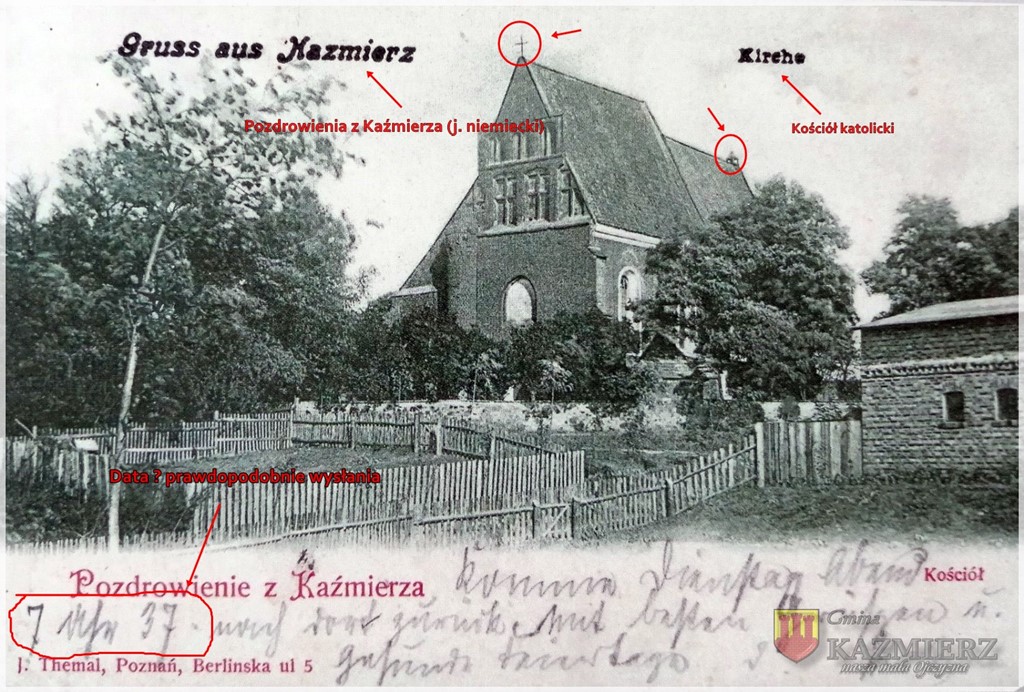 Gruss aus Kazmierz
Kirche
Pozdrowienia z Kaźmierza (j. niemiecki)
Kościół katolicki
Data ? prawdopodobnie wysłania
Pozdrowienie z Kaźmierza
Komme Dienstag Abend
Kościół
7 Uhr 37. nach dort zurück. Mit besten u.
J. Themal, Poznań, Berlinska ul 5
gesunde Feiertage
Gmina
KAŹMIERZ
nasza mała Ojczyzna